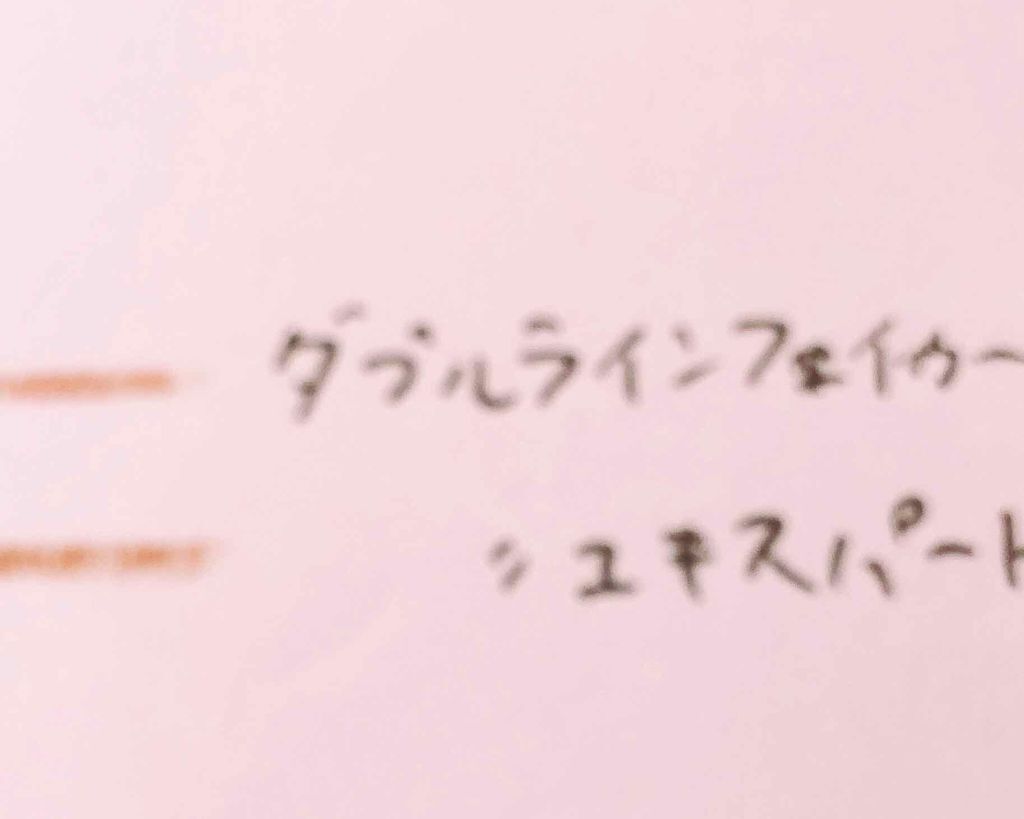 ダブルラインフェイカー
〃エキスパート